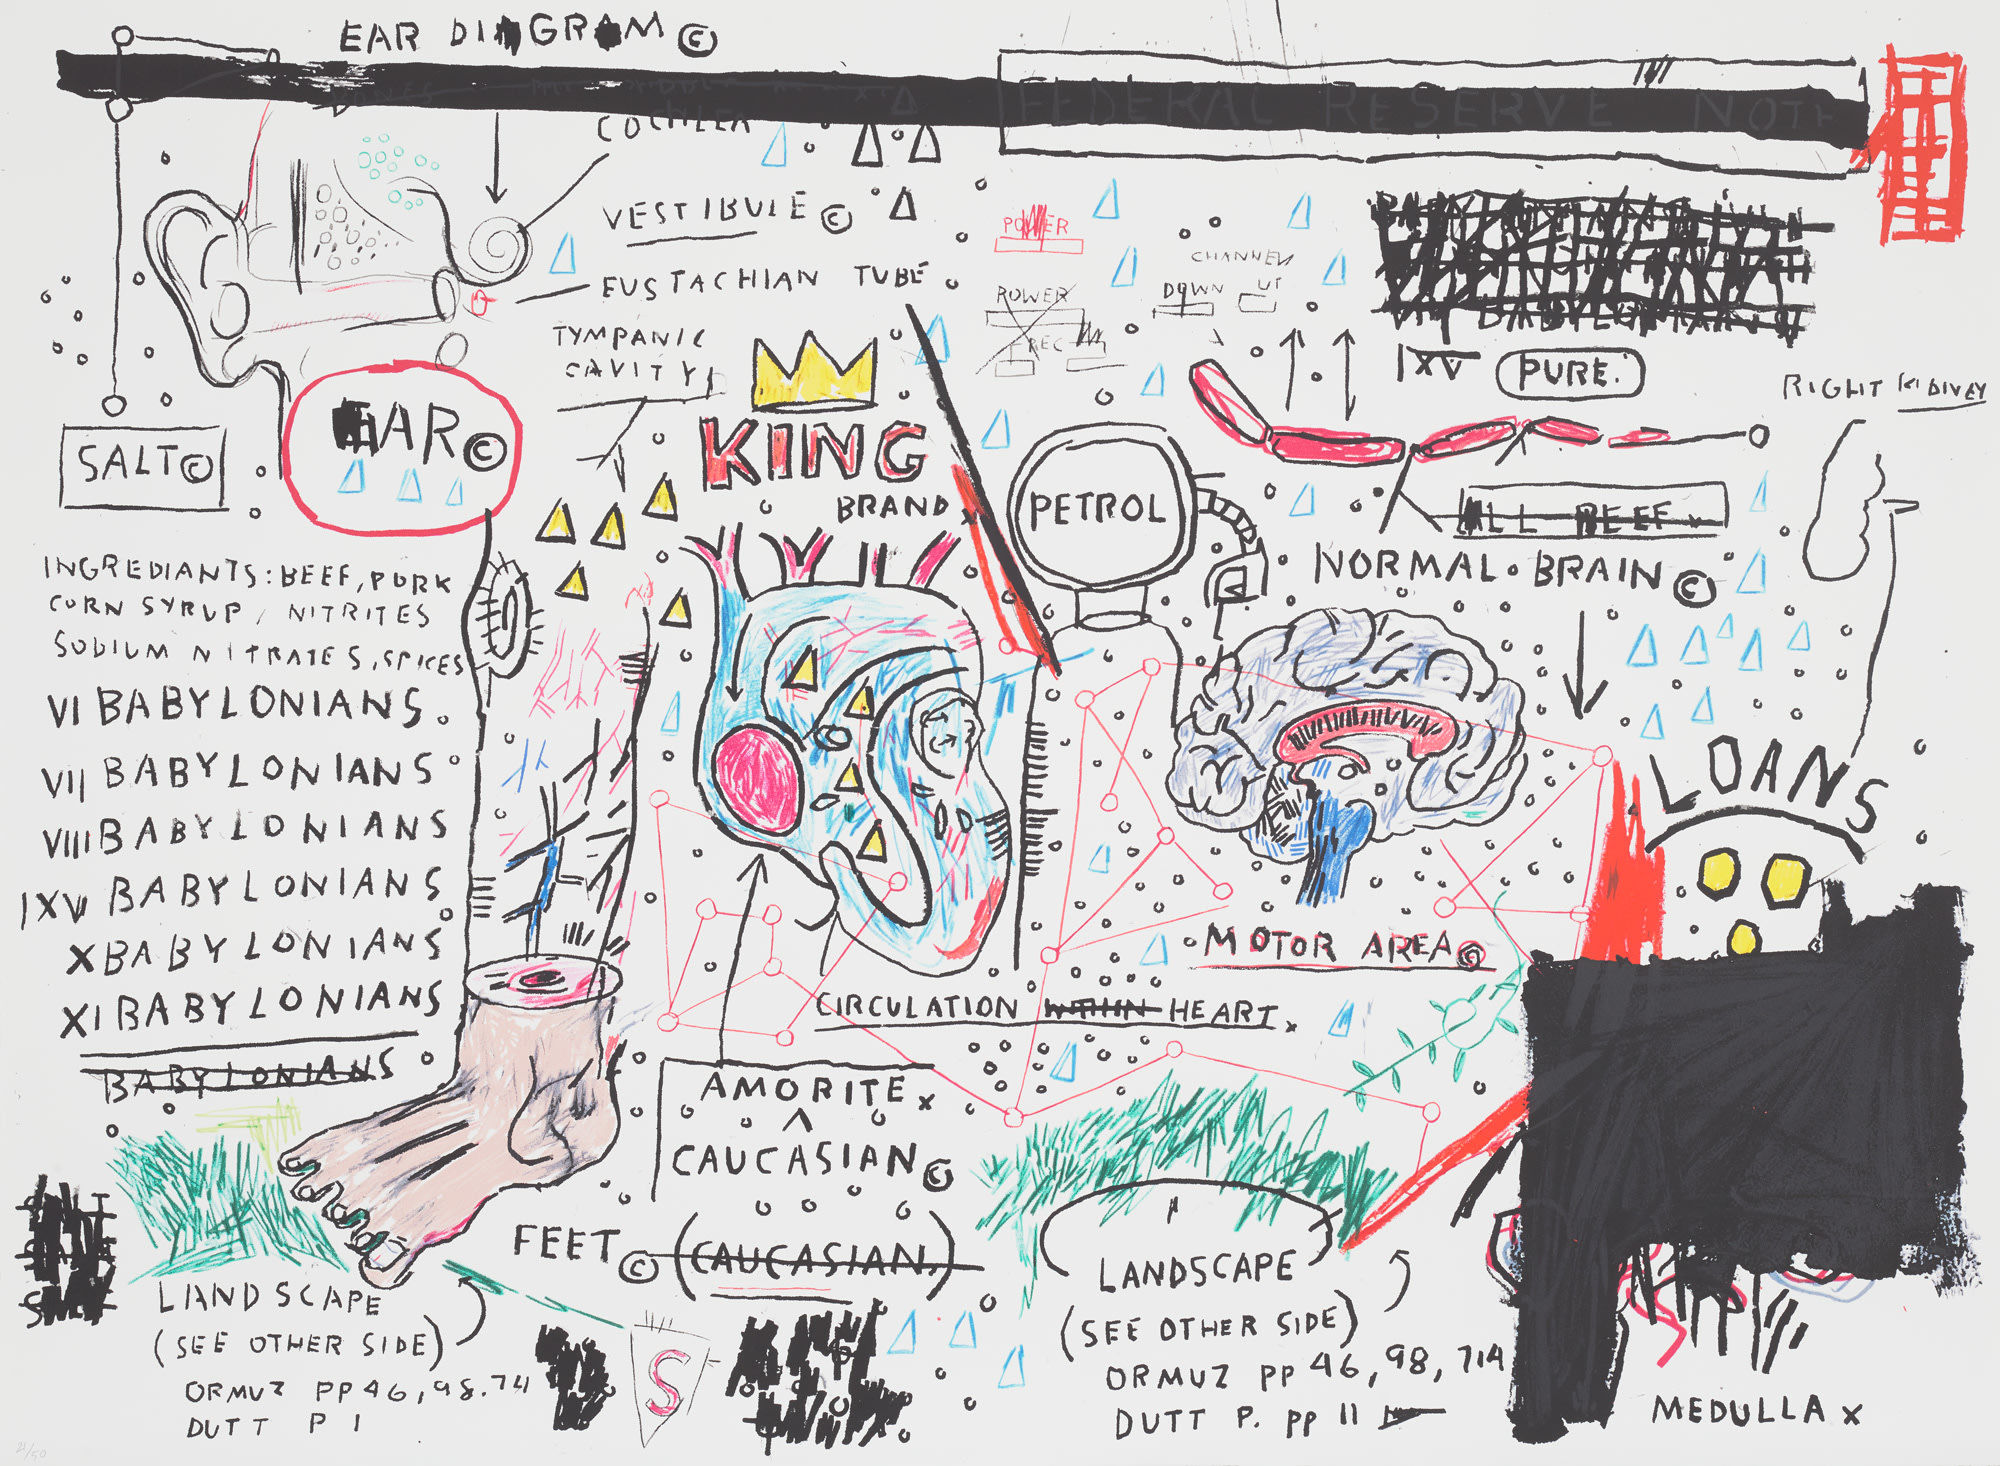 EAR DIAGRAM ©
FEDERAL RESERVE NOTE
COCHLEA
VESTIBULE ©
EUSTACHIAN TUBE
TYMPANIC
CAVITY
POWER
CHANNEL
POWER
DOWN UT
REC
IXV PURE.
RIGHT KIDNEY
EAR ©
SALT ©
KING
BRAND x
PETROL
ALL BEEF
NORMAL BRAIN ©
INGREDIANTS: BEEF, PORK
CORN SYRUP, NITRITES
SODIUM NITRATES, SPICES
VI BABYLONIANS
VII BABYLONIANS
VIII BABYLONIANS
IXV BABYLONIANS
X BABYLONIANS
XI BABYLONIANS
BABYLONIANS
LOANS
MOTOR AREA ©
CIRCULATION WITHIN HEART x
AMORITE x
CAUCASIAN ©
FEET © (CAUCASIAN)
LANDSCAPE
(SEE OTHER SIDE)
ORMUZ PP 46, 98. 74
DUTT P 1
S
LANDSCAPE
(SEE OTHER SIDE)
ORMUZ PP 46, 98, 714
DUTT P. PP 11
MEDULLA x
21/50